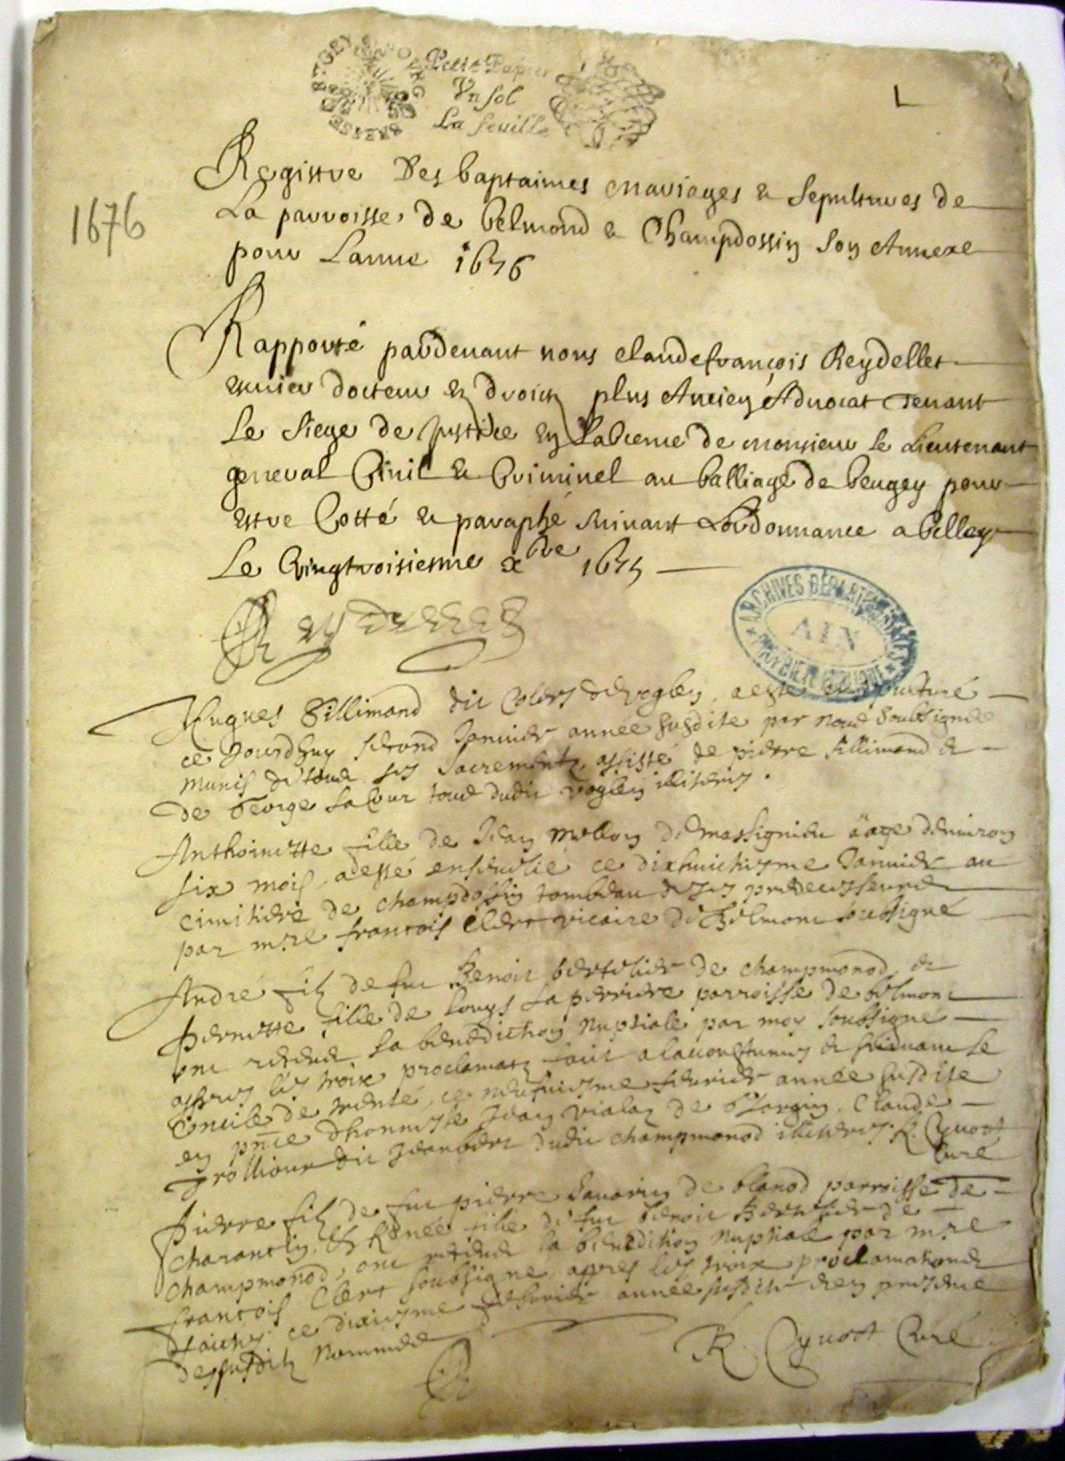 Petit Papier
Vn sol
La feuille
1676
Registre Des baptaimes mariages & Sepultures de
La parroisse de belmond & Champdossin son Annexe
pour Lanne 1676
Rapporté pardeuant nous claudefrançois Reydellet
escuier docteur en droict plus Ancien Aduocat tenant
Le siege de Justice en Labcence de monsieur le Lieutenant
general Ciuil & Criminel au balliage de beugey pour
estre Cotté & paraphé suiuant Lordonnance a belley
Le Vingtroisiesme xbre 1675
Reydellet
ARCHIVES DÉPARTEMENTALES
AIN
Hugues Billimand dit de vogley a esté
ce Jourdhuy second Januier année susdite par nous soubsigne
munis de tous ses sacrements, assisté de pierre billimand &
de George tous dudit vogley
Anthoinette fille de Jean de massignieu aage denuiron
six mois, a esté enseuelié ce dixhuictiesme Januier au
cimitiere de champdossin tombeau de ses predecesseurs
par mre francois Clerc vicaire de Belmont soubsigné
André filz de feu Benoit berthelier de champmonod, &
pernette fille de Louys La perriere parroisse de belmont
ont receue La benediction Nuptiale par moy soubsigné
apres les trois proclamatz faits a laccoustumé & suiuant le
Concile de trente, ce neufuiesme feburier année susdite
en pnce dhonneste Jean de Claude
dit Jeanbert dudit champmonod illiteres. R. Cyuoct
Curé
Pierre filz de feu pierre Sauarin de blanod parroisse de
charancin, & Renée fille de feu Benoit Berthelier de
champmonod, ont receue la benediction Nuptiale par mre
francois Clerc soubsigne, apres les trois proclamations
faictes ce dixiesme feburier année susdite & en presence
des susditz Nommées
R. Cyuoct Curé